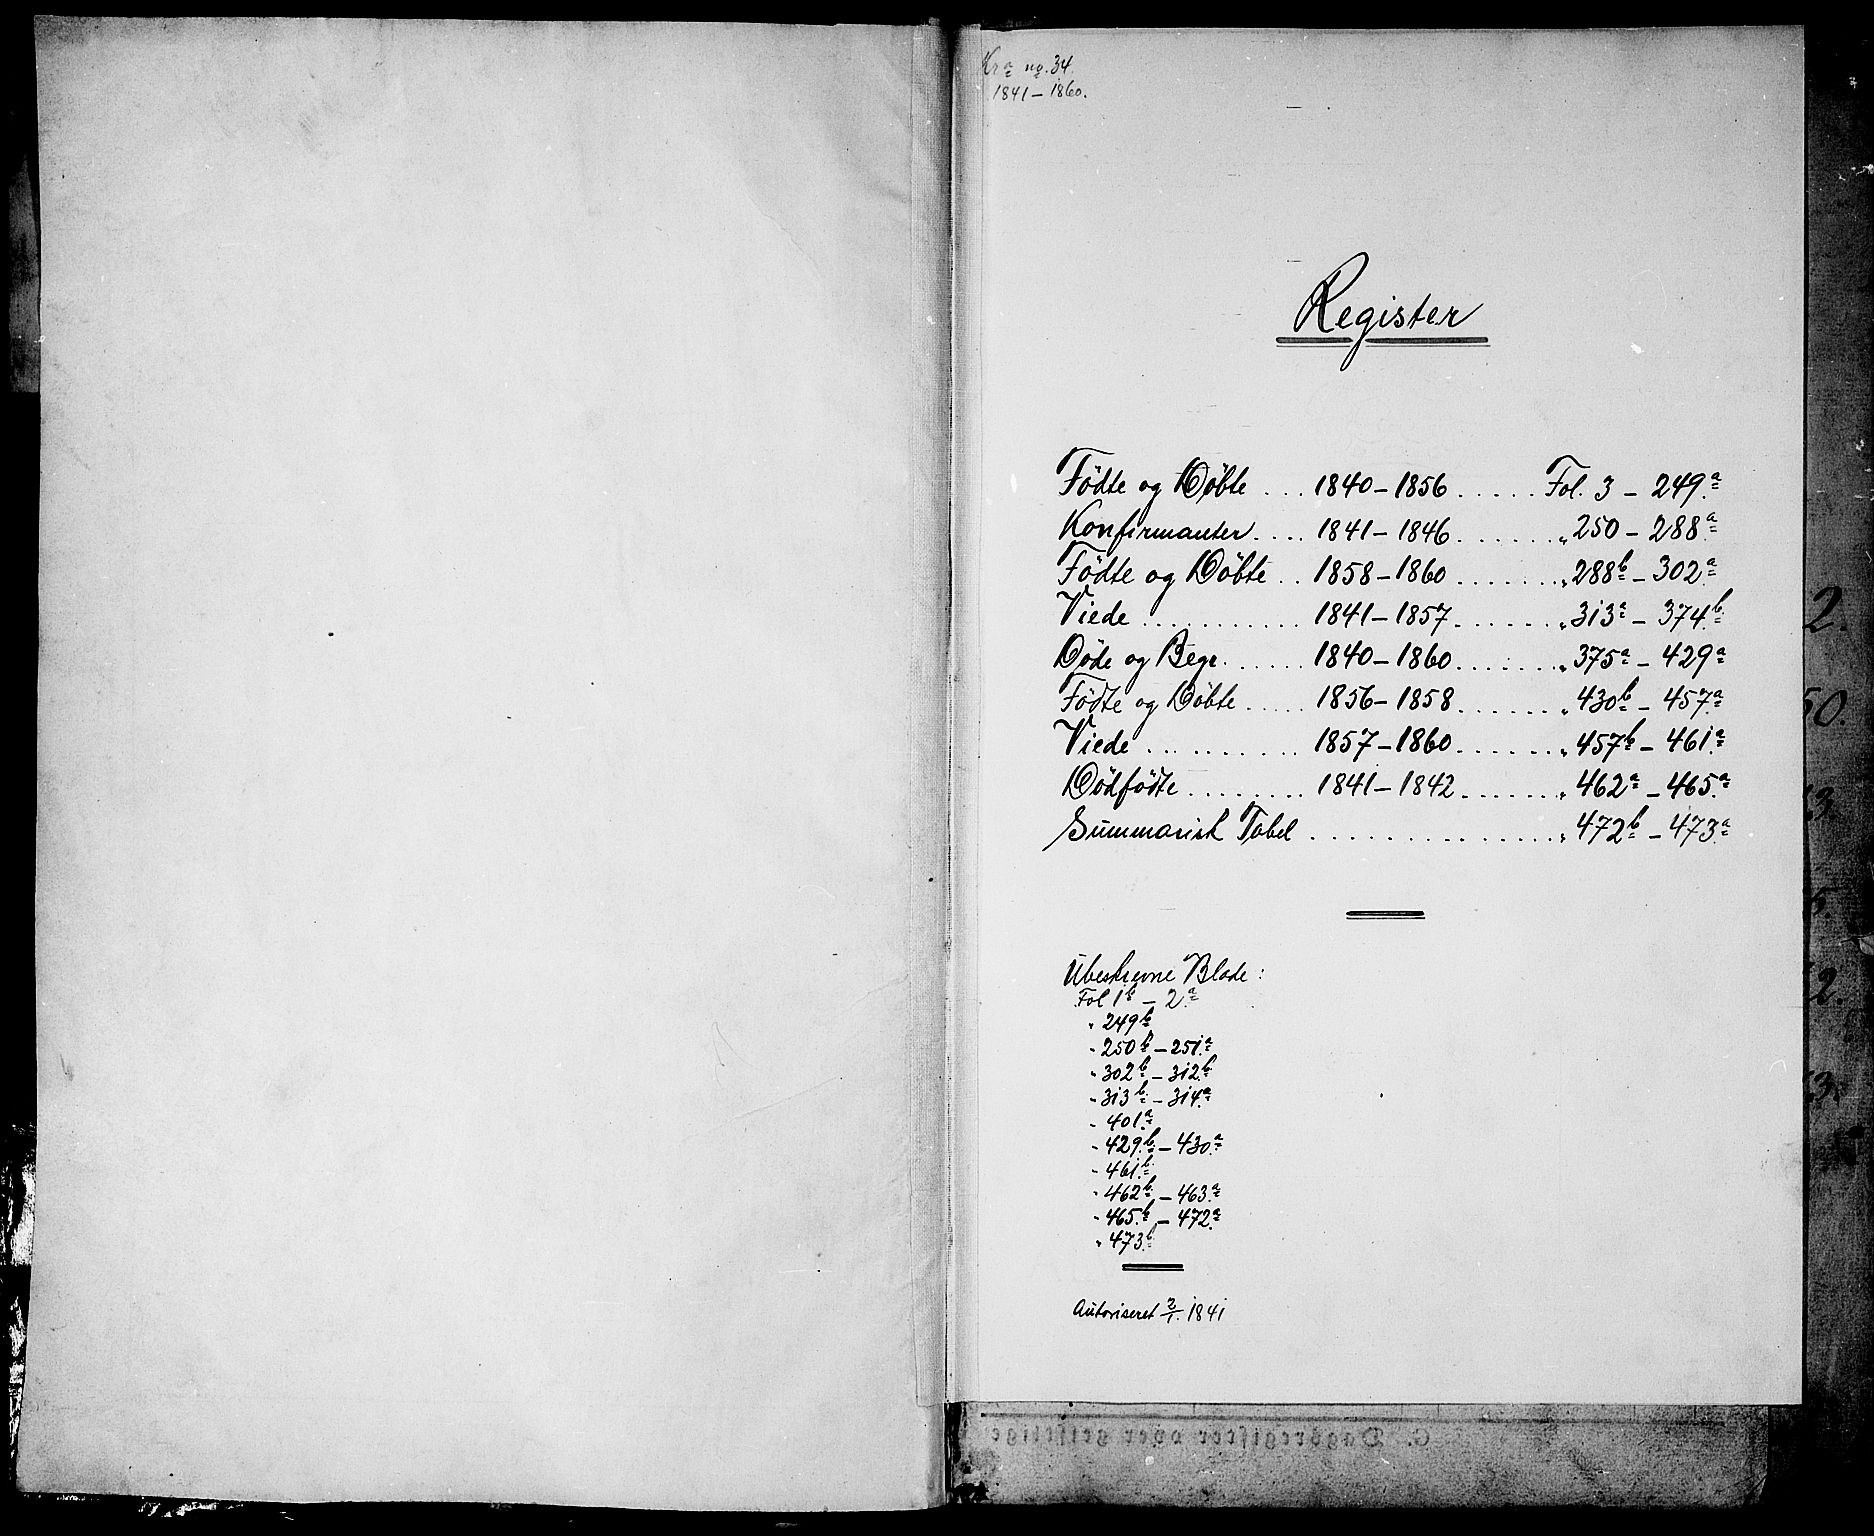 Kra no. 34.
1841 – 1860.
Register
Födte og Döbte .... 1840 – 1856 ..... Fol. 3 – 249.a
Konfirmanter .... 1841 – 1846 ....... „ 250 – 288.a
Födte og Döbte .. 1858 – 1860 ....... „ 288b – 302.a
Viede ........... 1841 – 1857 ....... „ 313a – 374b.
Döde og Begr. ...... 1840 – 1860 ....... „ 375a – 429a
Födte og Döbte ..... 1856 – 1858 ....... „ 430b – 457.a
Viede ........... 1857 – 1860 ....... „ 457b – 461.a
Dödfödte ........ 1841 – 1842 ....... „ 462a – 465.a
Summarisk Tabel ................ „ 472b – 473.a
Ubeskrevne Blade :
Fol 1b – 2.a
„ 249b
„ 250b – 251.a
„ 302b – 312b.
„ 313b – 314.a
„ 401.a
„ 429.b – 430.a
„ 461.b
„ 462b – 463.a
„ 465.b – 472.a
„ 473.b
Autoriseret 2/1. 1841
2.
50.
2.
C. Dagsregister over geistlige